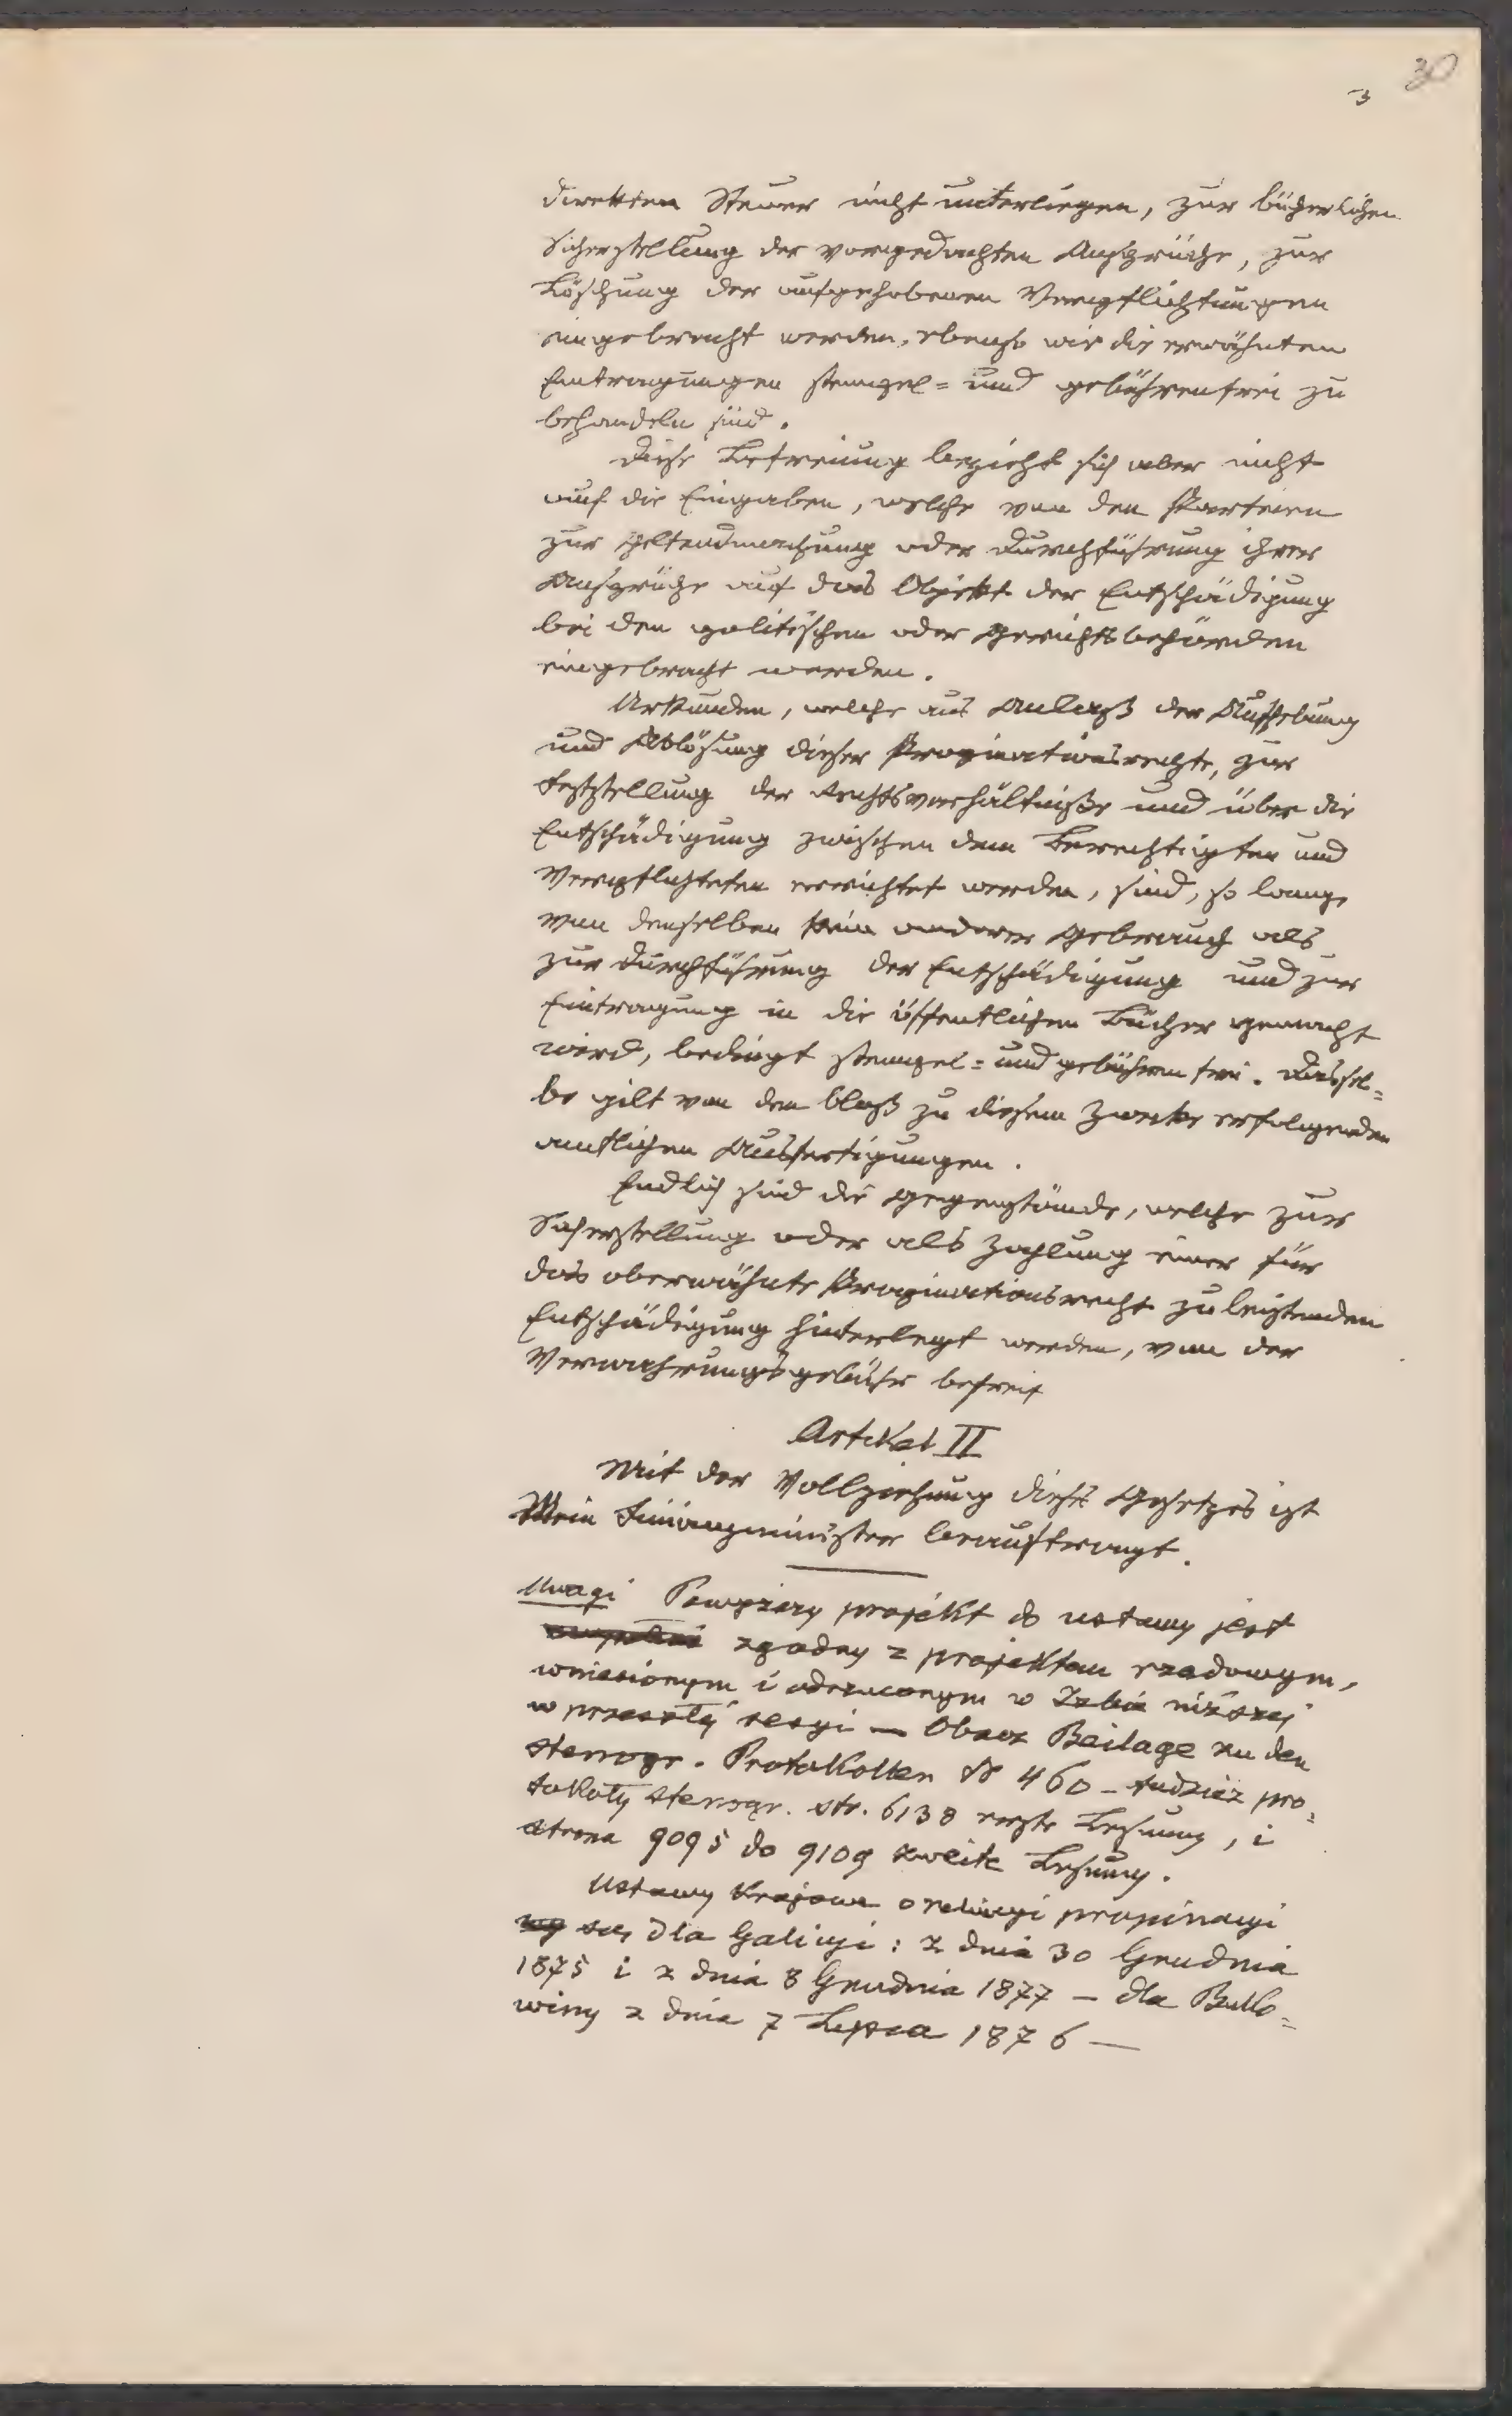 30
3
direkten Steuer nicht unterliegen, zur bücherlichen
Sicherstellung der vorgedachten Ansprüche, zur
Löschung der aufgehobenen Verpflichtungen
eingebracht werden, ebenso wie die erwähnten
Eintragungen stempel= und gebührenfrei zu
behandeln sind.
Diese Befreiung bezieht sich aber nicht
auf die Eingaben, welche von den Parteien
zur Geltendmachung oder Durchführung ihrer
Ansprüche auf das Objekt der Entschädigung
bei den politischen oder Gerichtsbehörden
eingebracht werden.
Urkunden, welche aus Anlaß der Aufhebung
und Ablösung dieser Propinationsrechte, zur
Feststellung der Rechtsverhältniße und über die
Entschädigung zwischen dem Berechtigten und
Verpflichteten errichtet werden, sind, so lange
von denselben kein anderer Gebrauch als
zur Durchführung der Entschädigung und zur
Eintragung in die öffentlichen Bücher gemacht
wird, bedingt stempel= und gebührenfrei. Dassel=
be gilt von den bloß zu diesem Zwecke erfolgenden
amtlichen Ausfertigungen.
Endlich sind die Gegenstände, welche zur
Sicherstellung oder als Zahlung einer für
das oberwähnte Propinationsrecht zu leistenden
Entschädigung hinterlegt werden, von der
Verwahrungsgebühr befreit
Artikel II
Mit der Vollziehung dieses Gesetzes ist
Mein Finanzminister beauftragt.
Uwagi Powyższy projekt do ustawy jest
zgodny z projektem rządowym,
wniesionym i odrzuconym w Izbie niższej
w przeszłej sesyi — Obacz Beilage zu den
stenogr. Protokollen № 460 – tudzież pro=
tokoły stenogr. str. 6138 erste Lesung, i
strona 9095 do 9109 zweite Lesung.
Ustawy krajowe o relucyi propinacyi
są dla Galicyi: z dnia 30 Grudnia
1875 i z dnia 8 Grudnia 1877 — dla Buko=
winy z dnia 7 Lipca 1876 —